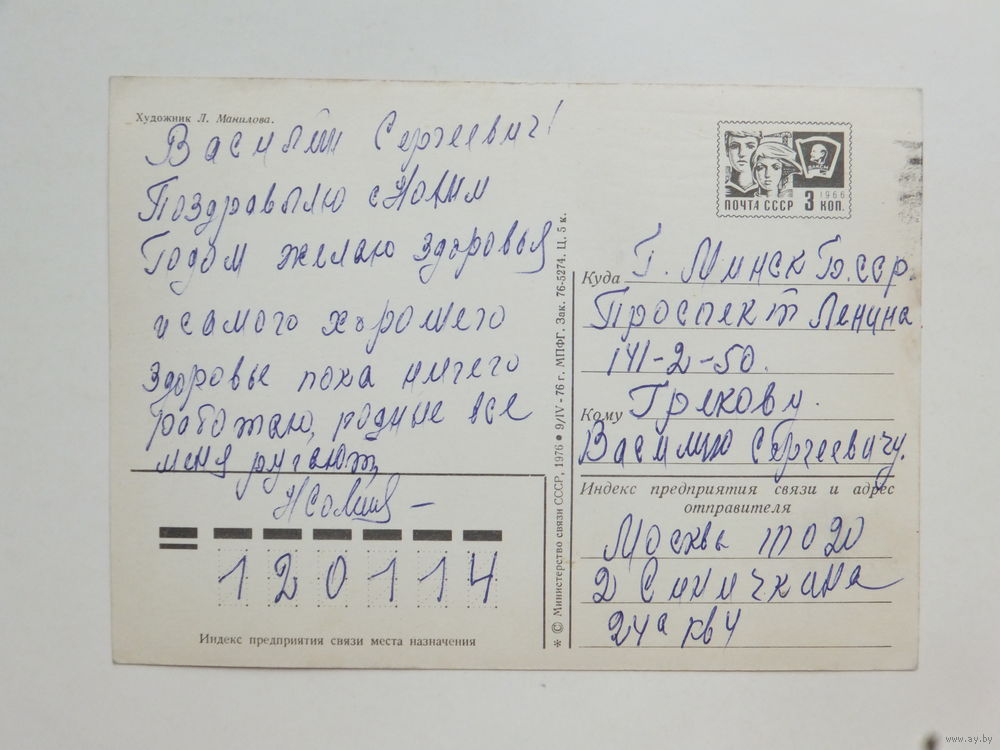 Художник Л. Манилова.
Василий Сергеевич!
Поздравьлю с Новим
Годом желаю здоровья
и самого хорошего
здоровье пока ничего
работаю, родные все
меня ругают
120114
Индекс предприятия связи места назначения
* © Министерство связи СССР, 1976 ● 9/IV-76 г. МПФГ. Зак. 76-5274. Ц. 5 к.
1966
ПОЧТА СССР 3 КОП.
Куда Г. Минск Б.сср.
Проспект Ленина
141-2-50.
Кому Грекову.
Василию Сергеевичу.
Индекс предприятия связи и адрес
отправителя
Москва 020
2 Синичкина
24а кв 4
www.ay.by